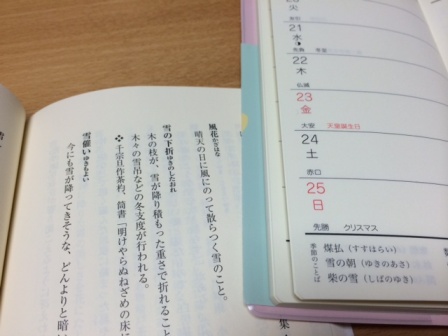 火
友引
21
水
先負 冬至
22
木
仏滅
23
金
大安 天皇誕生日
24
土
赤口
25
日
先勝 クリスマス
季節のことば
煤払（すすはらい）
雪の朝（ゆきのあさ）
柴の雪（しばのゆき）
風花かざはな
晴天の日に風にのって散らつく雪のこと。
雪の下折ゆきのしたおれ
木の枝が、雪が降り積もった重さで折れること
木々の雪吊などの冬支度が行われる。
❖千宗旦作茶杓、筒書「明けやらぬねざめの床
雪催いゆきもよい
今にも雪が降ってきそうな、どんよりと暗
集・